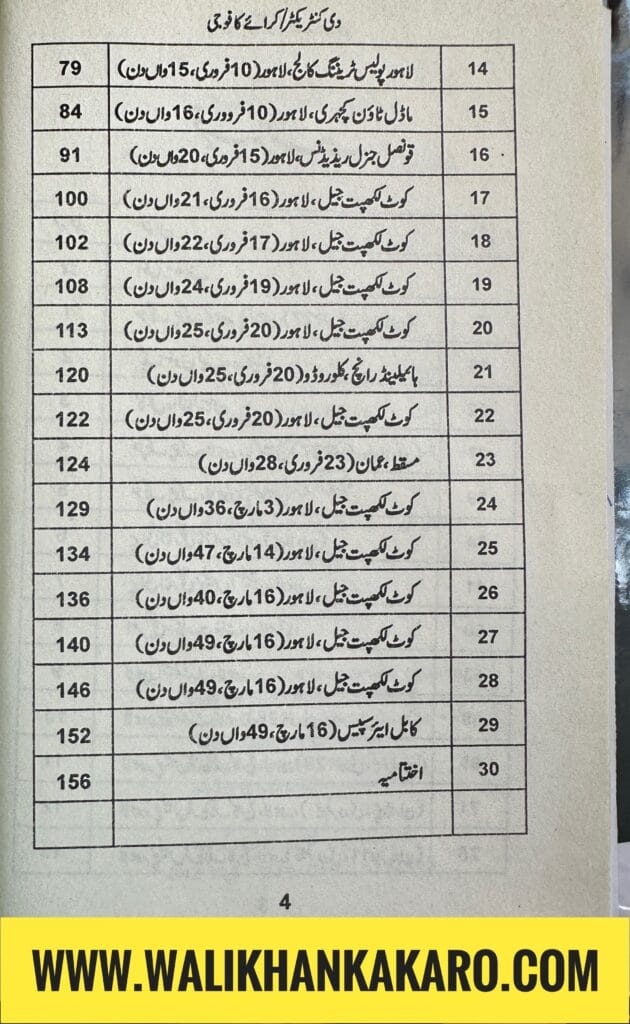 دی کنٹریکٹر/کرائے کا فوجی
14 لاہور پولیس ٹریننگ کالج، لاہور (10 فروری، 15واں دن) 79
15 ماڈل ٹاؤن کچہری، لاہور (10 فرووری، 16واں دن) 84
16 قونصل جنرل ریذیڈنس، لاہور (15 فروری، 20واں دن) 91
17 کوٹ لکھپت جیل، لاہور (16 فروری، 21واں دن) 100
18 کوٹ لکھپت جیل، لاہور (17 فروری، 22واں دن) 102
19 کوٹ لکھپت جیل، لاہور (19 فروری، 24واں دن) 108
20 کوٹ لکھپت جیل، لاہور (20 فروری، 25واں دن) 113
21 ہائیلینڈ رانچ، کلوروڈو (20 فروری، 25واں دن) 120
22 کوٹ لکھپت جیل، لاہور (20 فروری، 25واں دن) 122
23 مسقط، عمان (23 فروری، 28واں دن) 124
24 کوٹ لکھپت جیل، لاہور (3 مارچ، 36واں دن) 129
25 کوٹ لکھپت جیل، لاہور (14 مارچ، 47واں دن) 134
26 کوٹ لکھپت جیل، لاہور (16 مارچ، 40واں دن) 136
27 کوٹ لکھپت جیل، لاہور (16 مارچ، 49واں دن) 140
28 کوٹ لکھپت جیل، لاہور (16 مارچ، 49واں دن) 146
29 کابل ایئر سپیس (16 مارچ، 49واں دن) 152
30 اختتامیہ 156
4
WWW.WALIKHANKAKARO.COM